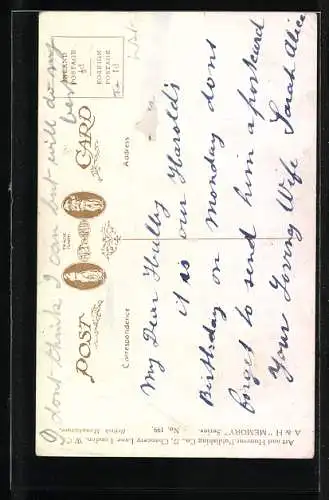 I dont think I can but will do my
best
POST CARD
INLAND
POSTAGE
½d
FOREIGN
POSTAGE
1d
TRADE
MARK
Correspondence
Address
My Dear Hubby
it is our Harold's
Birthday on Monday dont
forget to send him a postcard
Your Loving Wife Sarah Alice
Art and Humour Publishing Co., Chancery Lane, London, W.C.
A & H "MEMORY" Series. No. 199. British Manufacture.